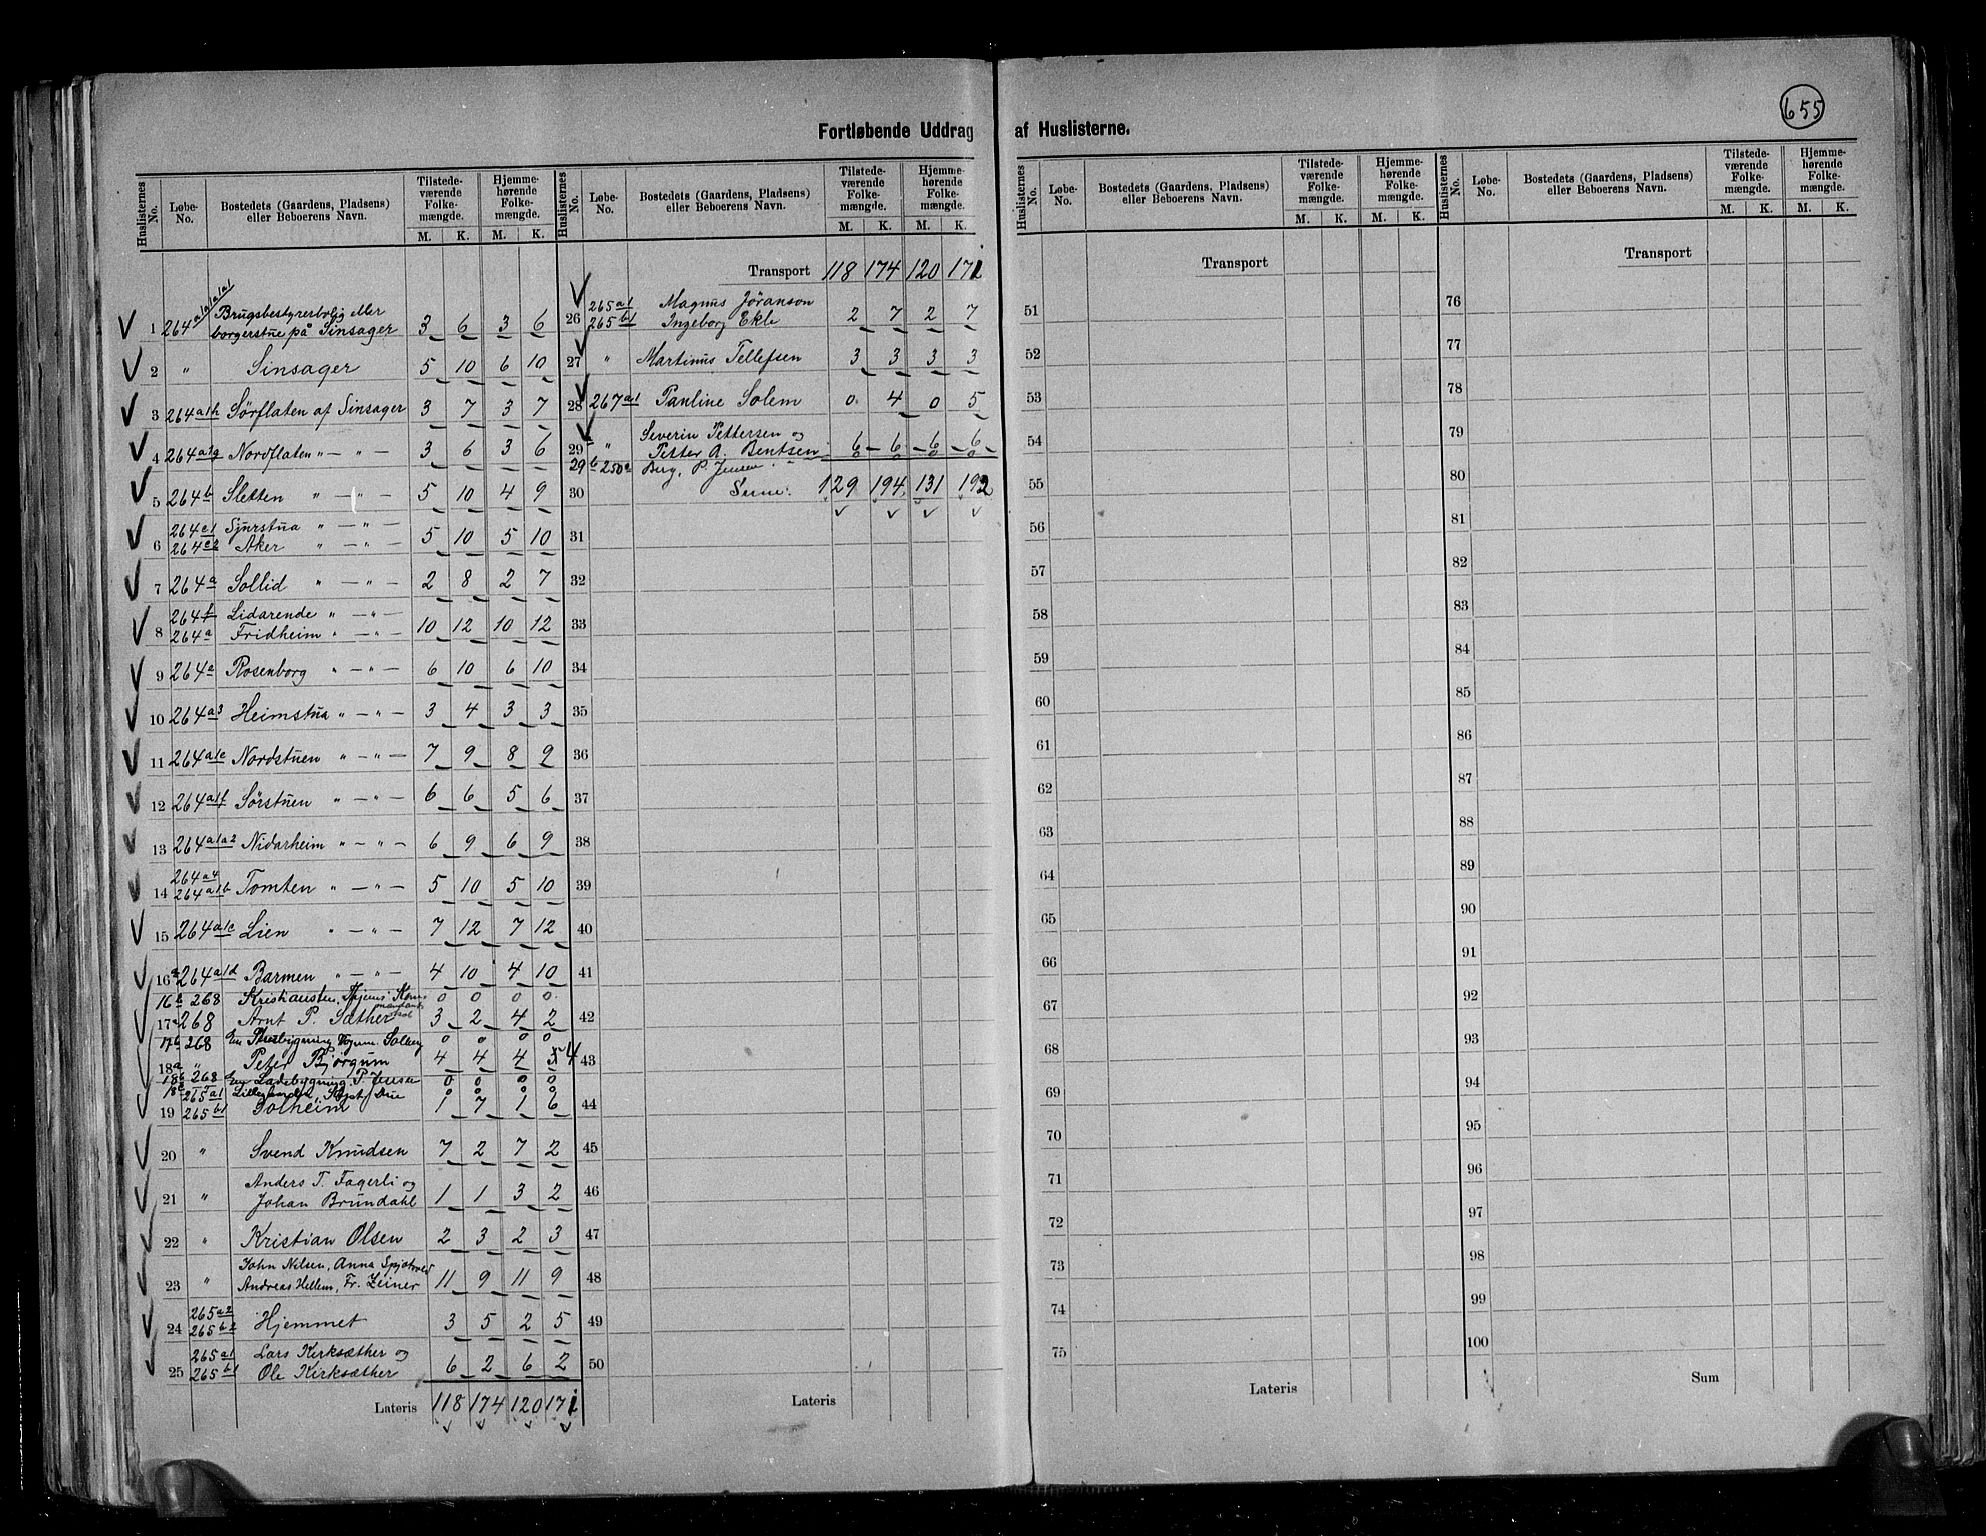 655
Fortløbende Uddrag af Huslisterne.
Huslisternes No. Løbe-No. Bostedets (Gaardens, Pladsens) eller Beboerens Navn. Tilstedeværende Folkemængde. M. K. Hjemmehørende Folkemængde. M. K.
1 264 a1a1a1 Brugsbestyrerbolig eller
borgerstue på Sinsager 3 6 3 6
2 " Sinsager 5 10 6 10
3 264 a1h Sörflaten af Sinsager 3 7 3 7
4 264 a1g Nordflaten " — " — 3 6 3 6
5 264 b Sletten " — " — 5 10 4 9
264 c1 Sjurstua " — " —
6 264 c2 Aker " — " — 5 10 5 10
7 264 a Sollid " — " — 2 8 2 7
264 f Lidarende " — " —
8 264 a Fridheim " — " — 10 12 10 12
9 264 a Rosenborg " — " — 6 10 6 10
10 264 a3 Heimstua " — " — 3 4 3 3
11 264 a1e Nordstuen " — " — 7 9 8 9
12 264 a1f Sörstuen " — " — 6 6 5 6
13 264 a1a2 Nidarheim " — " — 6 9 6 9
264 a4
14 264 a1b Tomten " — " — 5 10 5 10
15 264 a1c Lien " — " — 7 12 7 12
16a 264 a1d Barmen " — " — 4 10 4 10
16b 268 Kristiansten, 0 0 0 0
17a 268 Arnt P. Sæther 3 2 4 2
17b 268 En Solberg 0 0 0 0
18a " Peter Björgum 4 4 4 4
18b 268 En Ladebygning P. Jensen 0 0 0 0
18c 265 a1 0 0 0 0
19 265 b1 Solheim 1 7 1 6
20 " Svend Knudsen 7 2 7 2
Anders T. Fagerli og
21 " Johan Brundahl 1 1 3 2
22 " Kristian Olsen 2 3 2 3
John Nilsen, Anna Spjotvold
23 " Andreas Hellem, Fr. Zeiner 11 9 11 9
265 a2
24 265 b2 Hjemmet 3 5 2 5
265 a1 Lars Kirksæther og
25 265 b1 Ole Kirksæther 6 2 6 2
Lateris 118 174 120 171
Huslisternes No. Løbe-No. Bostedets (Gaardens, Pladsens) eller Beboerens Navn. Tilstedeværende Folkemængde. M. K. Hjemmehørende Folkemængde. M. K.
Transport 118 174 120 171
265 a1 Magnus Jöranson
26 265 b1 Ingeborg Ekle 2 7 2 7
27 " Martinus Tellefsen 3 3 3 3
28 267 a1 Pauline Solem 0 4 0 5
Severin Pettersen og
29a " Petter A. Bentsen 6 6 6 6
29b 250a Berg, P. Jensen 0 0 0 0
30 Sum 129 194 131 192
31
32
33
34
35
36
37
38
39
40
41
42
43
44
45
46
47
48
49
50
Lateris
Huslisternes No. Løbe-No. Bostedets (Gaardens, Pladsens) eller Beboerens Navn. Tilstedeværende Folkemængde. M. K. Hjemmehørende Folkemængde. M. K.
Transport
51
52
53
54
55
56
57
58
59
60
61
62
63
64
65
66
67
68
69
70
71
72
73
74
75
Lateris
Huslisternes No. Løbe-No. Bostedets (Gaardens, Pladsens) eller Beboerens Navn. Tilstedeværende Folkemængde. M. K. Hjemmehørende Folkemængde. M. K.
Transport
76
77
78
79
80
81
82
83
84
85
86
87
88
89
90
91
92
93
94
95
96
97
98
99
100
Sum